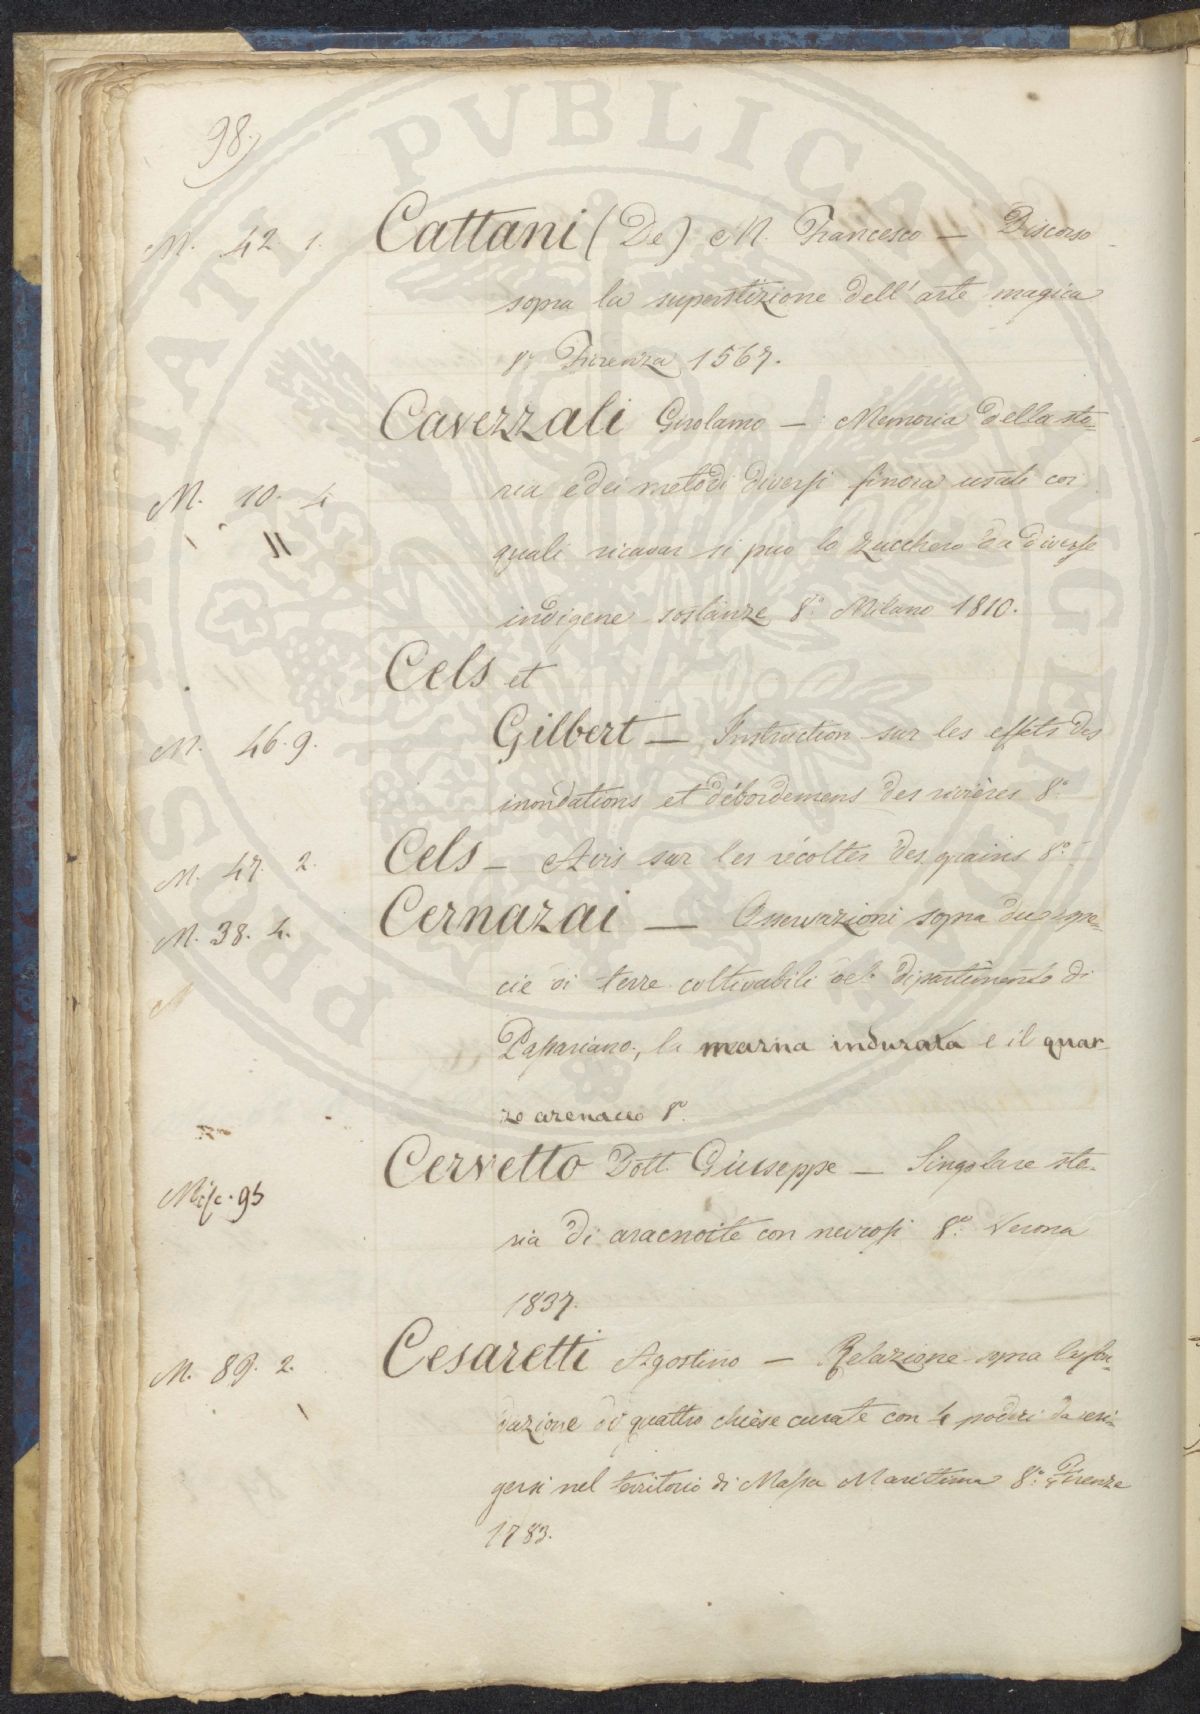 98.
M. 42. 1. Cattani (De) M. Francesco — Discorso
sopra la superstizione dell'arte magica
8° Firenza 1567.
Cavezzali Girolamo — Memoria della sto=
M. 10. 4 ria e dei metodi diversi finora usati coi
quali ricavar si puo lo zucchero da diverse
indigene sostanze 8° Milano 1810.
Cels et
M. 46. 9. Gilbert — Instruction sur les effets des
inondations et débordemens des rivières 8°
M. 47. 2. Cels — Avis sur les récoltes des grains 8°
M. 38. 4. Cernazai — Osservazioni sopra due spe=
M cie di terre coltivabili del dipartimento di
Passariano, la marna indurata e il quar=
zo arenaceo 8°
Misc. 95 Cervetto Dott. Giuseppe — Singolare sto=
ria di aracnoite con nevrosi 8° Verona
1837.
M. 89. 2. Cesaretti Agostino — Relazione sopra la fon=
dazione di quattro chiese curate con 4 poderi da eri=
gersi nel territorio di Massa Marittima 8° Firenze
1783.
PROSPERITATI PVBLICAE AVGENDAE